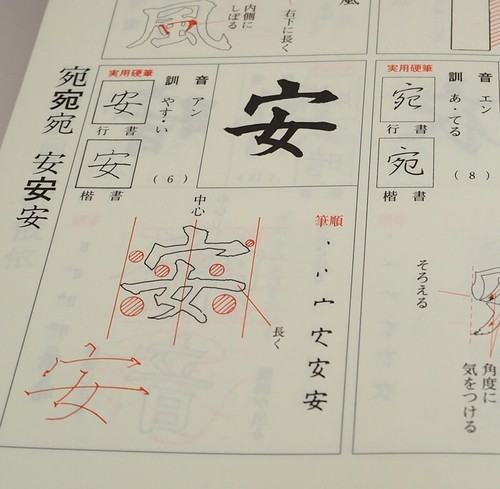 風
内側に
しぼる
右下に長く
風
実用硬筆
エン
訓
あ・てる
(8)
宛
行書
宛
楷書
そろえる
角度に
気をつける
安
音
アン
訓
やす・い
(6)
実用硬筆
安
行書
安
楷書
宛宛宛
安安安
筆順
、
宀
安
安
中心
安
長く
安